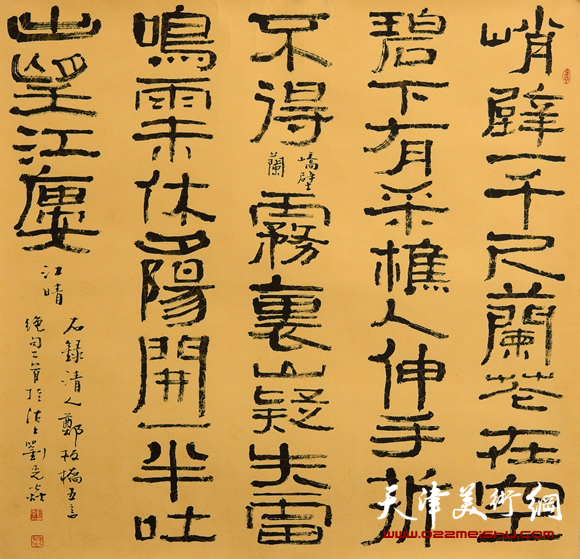 峭壁一千尺蘭花在空
碧下有采樵人伸手折
不得
嶠壁
蘭
霧裏山疑失雷
鳴雨未休夕陽開一半吐
出望江廔
江晴
右録清人鄭板橋五言
絕句二首於沽上劉光
天津美術網
www.022meishu.com